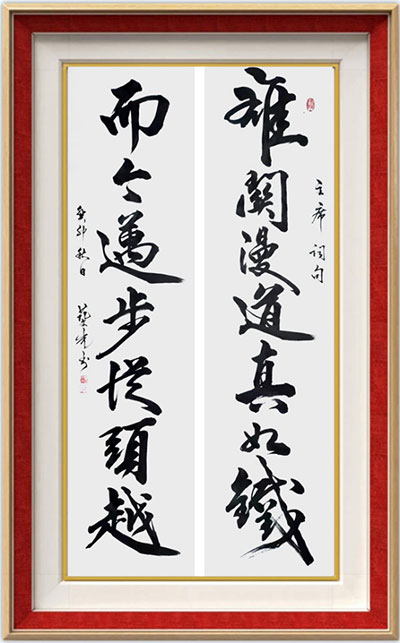 雄關漫道真如鐵
主席詞句
而今邁步從頭越
癸卯秋日